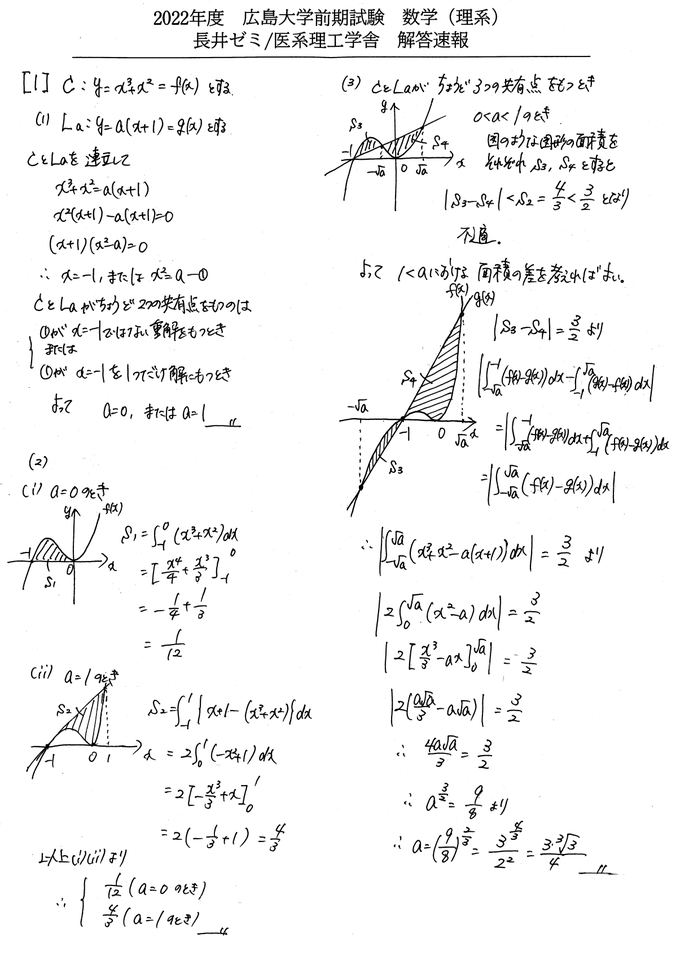 2022年度 広島大学前期試験 数学（理系）
長井ゼミ/医系理工学舎 解答速報
[1] C：y=x³+x²=f(x) とする
(1) La：y=a(x+1)=g(x)とする
CとLaを連立して
x³+x²=a(x+1)
x²(x+1)-a(x+1)=0
(x+1)(x²-a)=0
∴ x=-1, または x²=a-①
CとLaがちょうど2つの共有点をもつのは
①が x=-1ではない重解をもつとき
または
①が x=-1を1つだけ解にもつとき
よって a=0, または a=1
(2)
(i) a=0のとき
y f(x)
-1 0 x
S₁
S₁=∫₋₁⁰(x³+x²)dx
=[x⁴/4+x³/3]₋₁⁰
=-1/4+1/3
=1/12
(ii) a=1のとき
S₂
-1 0 1 x
S₂=∫₋₁¹{x+1-(x³+x²)}dx
=2∫₀¹(-x²+1)dx
=2[-x³/3+x]₀¹
=2(-1/3+1)=4/3
以上(i)(ii)より
∴ { 1/12 (a=0のとき)
4/3 (a=1のとき)
(3) CとLaが ちょうど3つの共有点をもつとき
y
S₃ S₄
-1 -√a 0 √a x
0<a<1のとき
図のような図形の面積を
それぞれ S₃, S₄とすると
|S₃-S₄|<S₂=4/3<3/2 となり
不適.
よって 1<aにおける 面積の差を考えればよい.
f(x) g(x)
S₄
-√a -1 0 √a x
S₃
|S₃-S₄|=3/2 より
|∫₋√ₐ⁻¹(f(x)-g(x))dx-∫₋₁√ᵃ(g(x)-f(x))dx|
=|∫₋√ₐ⁻¹(f(x)-g(x))dx+∫₋₁√ᵃ(f(x)-g(x))dx|
=|∫₋√ₐ√ᵃ(f(x)-g(x))dx|
∴ |∫₋√ₐ√ᵃ(x³+x²-a(x+1))dx|=3/2 より
|2∫₀√ᵃ(x²-a)dx|=3/2
|2[x³/3-ax]₀√ᵃ|=3/2
|2(a√a/3-a√a)|=3/2
∴ 4a√a/3=3/2
∴ a^(3/2)=9/8 より
∴ a=(9/8)^(2/3)=3^(4/3)/2²=3·³√3/4